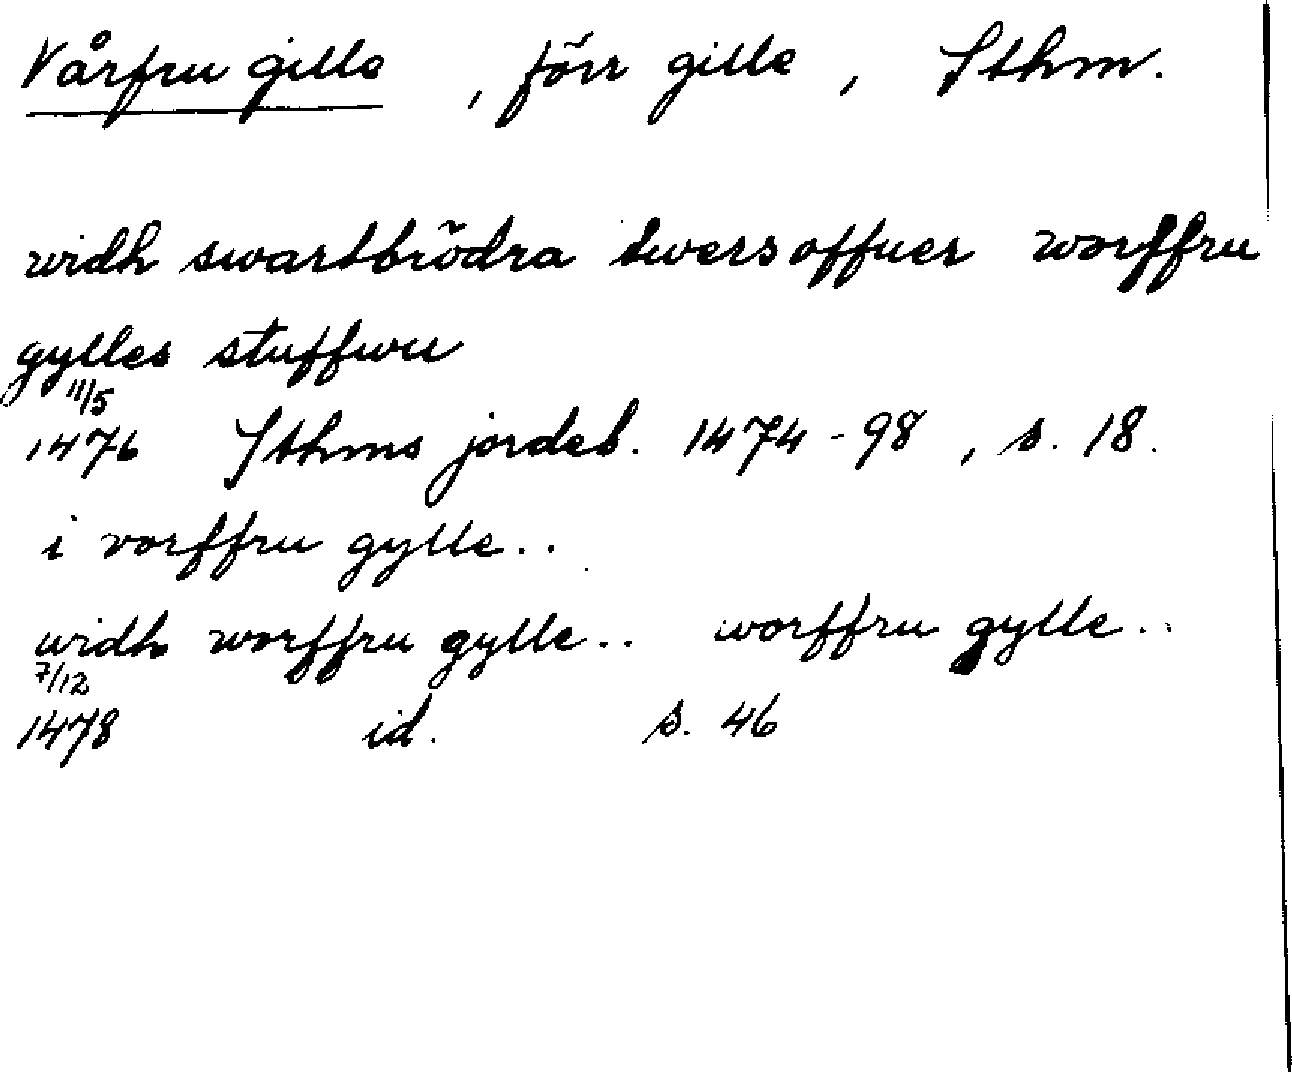 Vårfru gille, förr gille, Sthm.
widh swartbrödra twers offuer worffru
gylles stuffwu
11/5
1476 Sthms jordeb. 1474-98, s. 18.
i vorffru gylle..
widh worffru gylle.. worffru gylle..
7/12
1478 id. s. 46